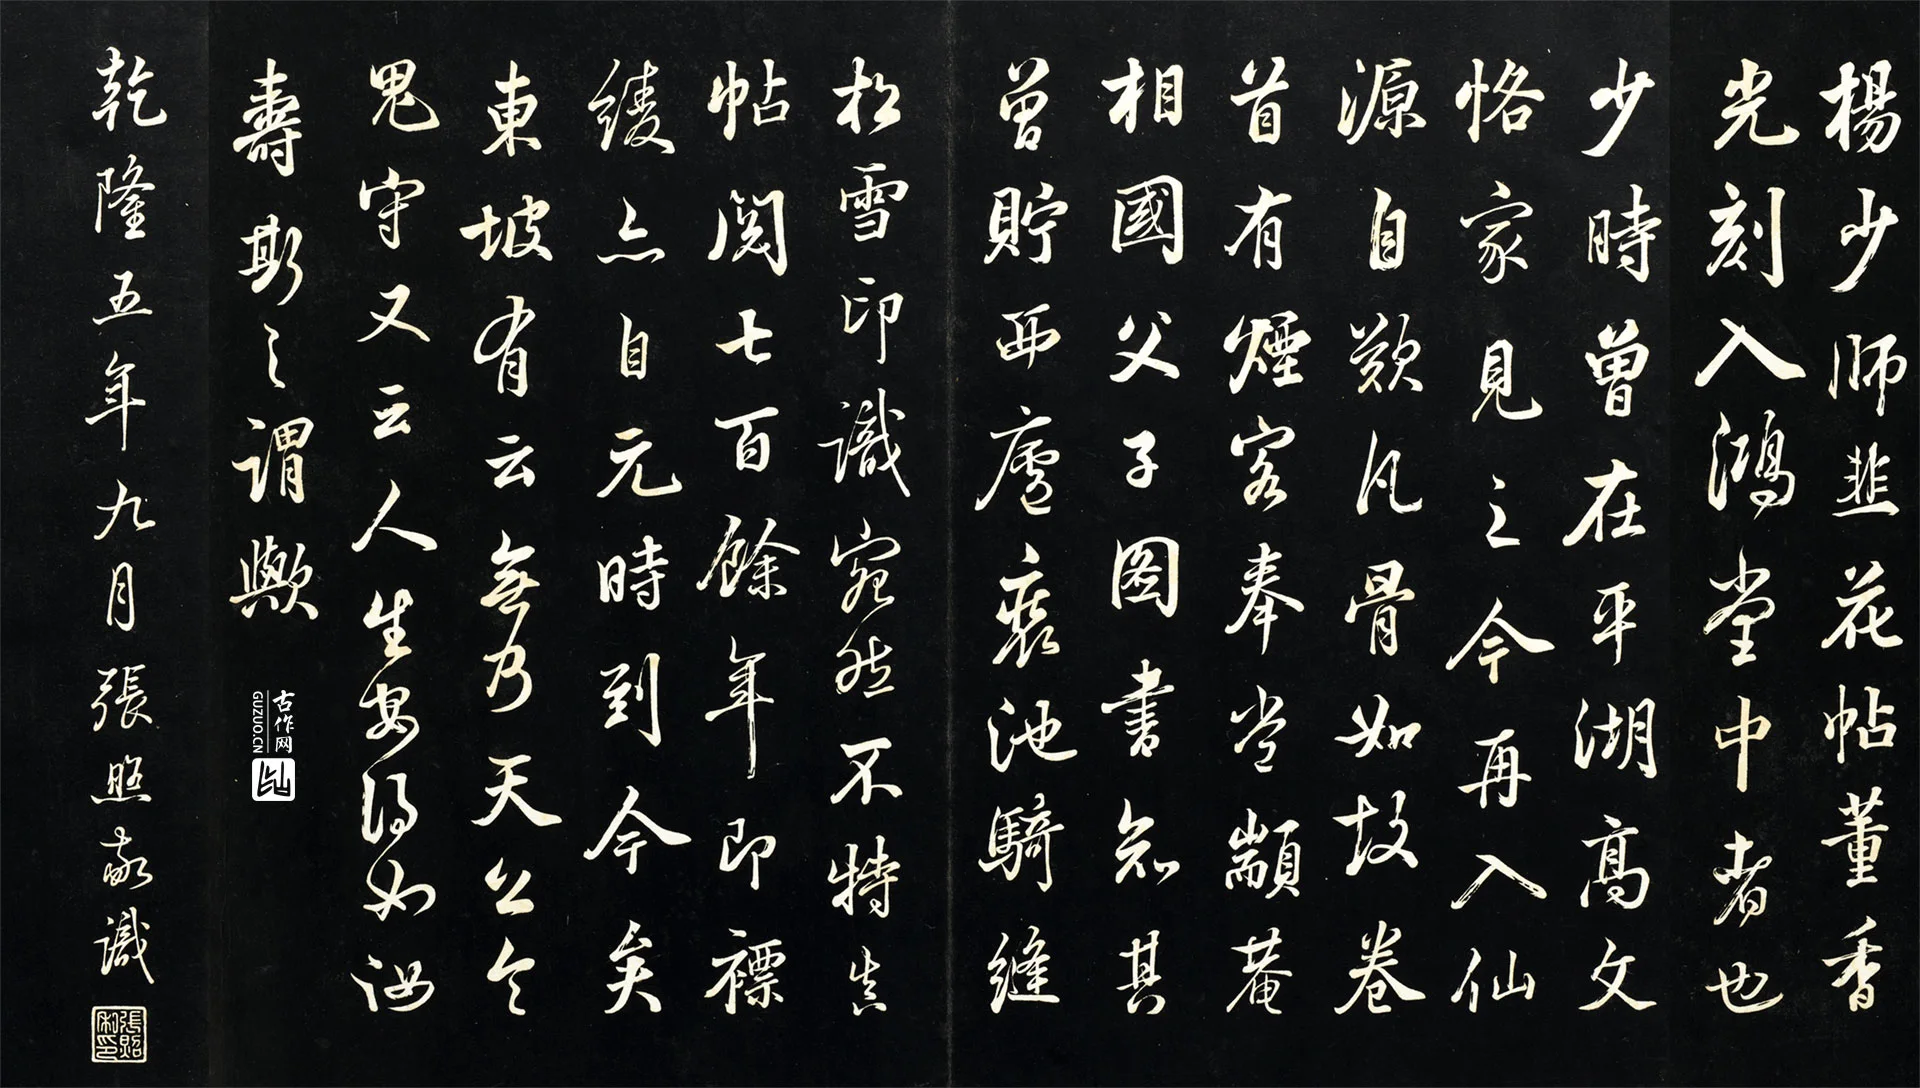 楊少師韭花帖董香
光刻入鴻堂中者也
少時曾在平湖高文
恪家見之今再入仙
源自歎凡骨如故卷
首有煙客奉常顓菴
相國父子圖書知其
曾貯西廬池騎縫
松雪印識宛然不特真
帖閱七百餘年即褾
綾亦自元時到今矣
東坡有云無乃天公令
鬼守又云人生安得如汝
壽斯之謂歟
乾隆五年九月張照敬識
張照私印
古作网
GUZUO.CN